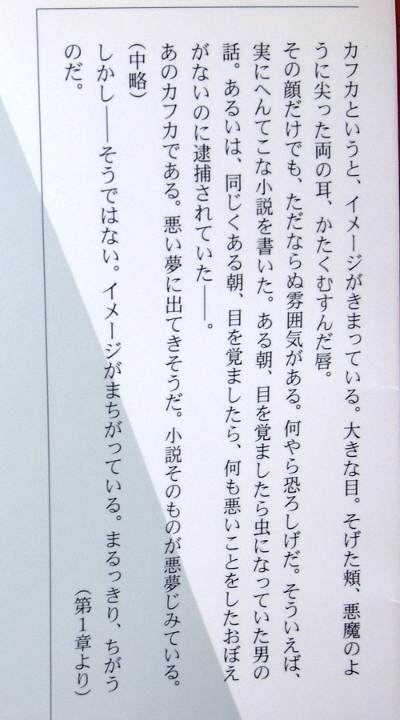 カフカというと、イメージがきまっている。大きな目。そげた頬、悪魔のよ
うに尖った両の耳、かたくむすんだ唇。
その顔だけでも、ただならぬ雰囲気がある。何やら恐ろしげだ。そういえば、
実にへんてこな小説を書いた。ある朝、目を覚ましたら虫になっていた男の
話。あるいは、同じくある朝、目を覚ましたら、何も悪いことをしたおぼえ
がないのに逮捕されていた――。
あのカフカである。悪い夢に出てきそうだ。小説そのものが悪夢じみている。
（中略）
しかし――そうではない。イメージがまちがっている。まるっきり、ちがう
のだ。
（第1章より）